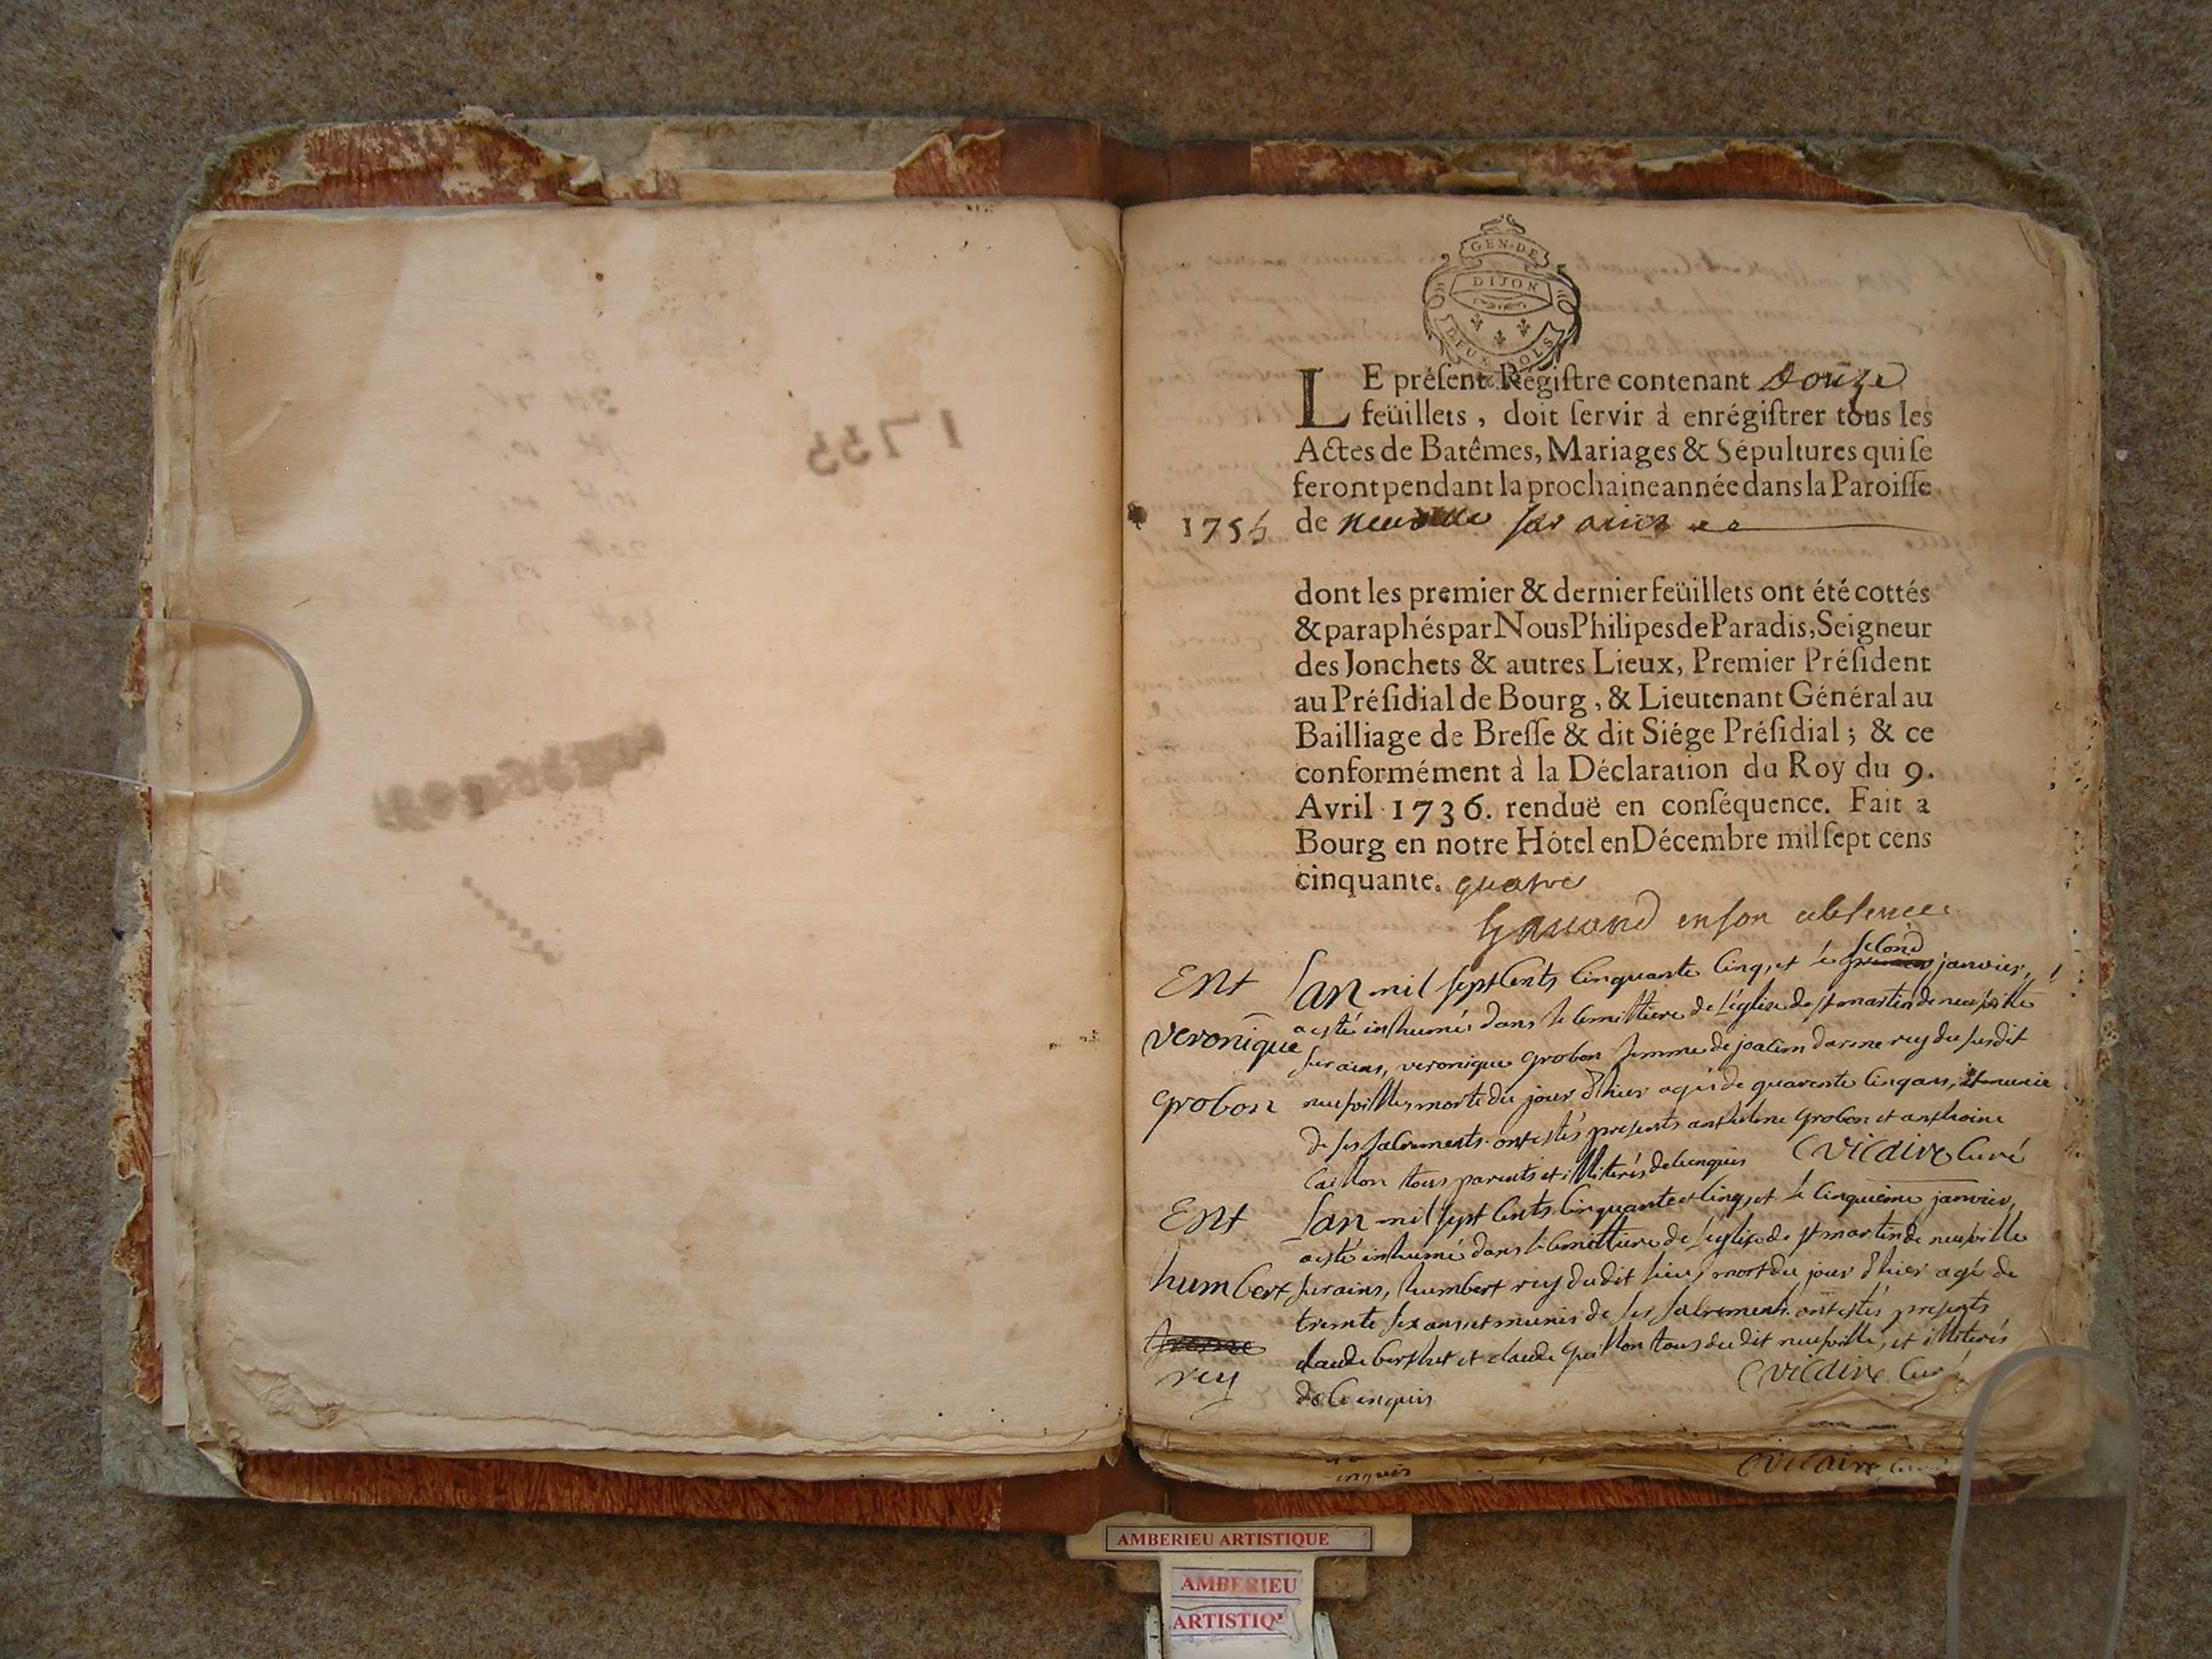 1755
GEN. DE
DIJON
DEUX SOLS
LE présent Régistre contenant douze
feüillets, doit servir à enrégistrer tous les
Actes de Batêmes, Mariages & Sépultures qui se
feront pendant la prochaine année dans la Paroisse
1755 de neuville sur ains
dont les premier & dernier feüillets ont été cottés
& paraphés par Nous Philipes de Paradis, Seigneur
des Jonchets & autres Lieux, Premier Président
au Présidial de Bourg, & Lieutenant Général au
Bailliage de Bresse & dit Siége Présidial ; & ce
conformément à la Déclaration du Roy du 9.
Avril 1736. renduë en conséquence. Fait a
Bourg en notre Hôtel en Décembre mil sept cens
cinquante. quatre
en son absence
Ent Lan mil sept Cents Cinquante Cinq, et le second janvier,
a esté inhumée dans le Cemittiere de l'église de st martin de neufville
veronique sur ains, veronique grobon femme de joacim darme rey du susdit
grobon neufville, morte du jour d'hier agée de quarente Cinq ans, et munie
de ses sacrements. ont estés presents anthelme grobon et anthoine
Caillon tous parents et illiterés de Ce enquis Vicaire Curé
Ent Lan mil sept Cents Cinquante et Cinq, et le Cinquieme janvier,
a esté inhumé dans le Cemittiere de l'église de st martin de neufville
humbert sur ains, humbert rey dudit lieu, mort du jour d'hier agé de
trente six ans, et munis de ses sacrements. ont estés presents
rey claude berthet et claude guillon tous du dit neufville, et illiterés
de Ce enquis Vicaire Curé
enquis Vicaire Curé
AMBERIEU ARTISTIQUE
AMBERIEU
ARTISTIQ